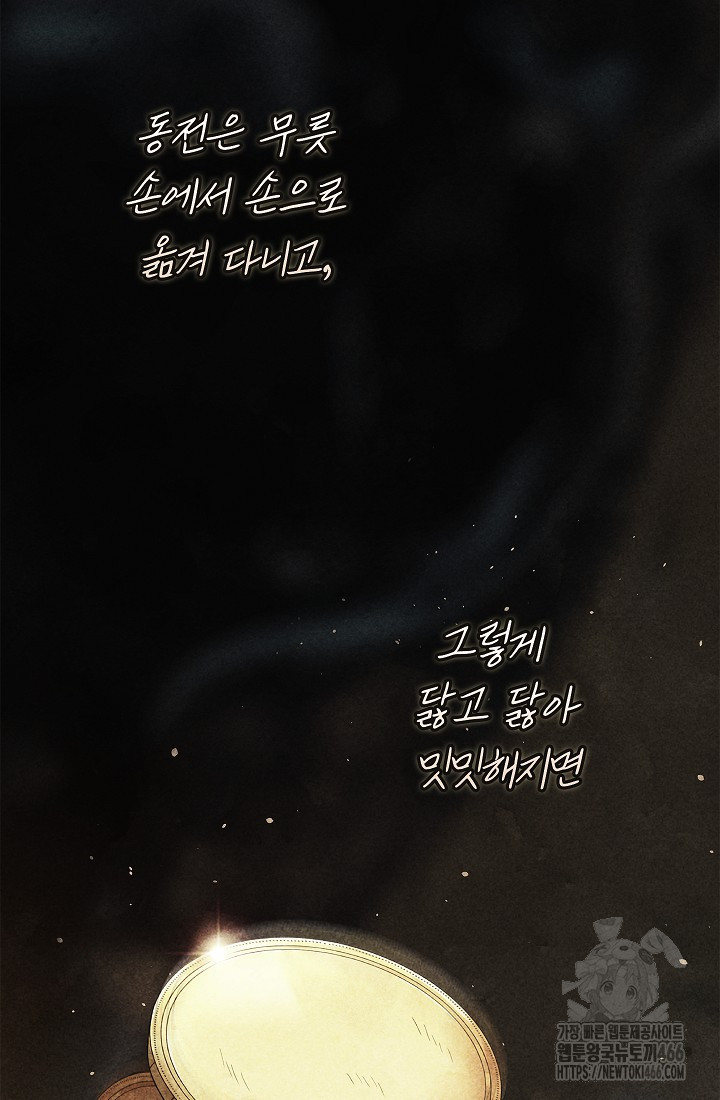 동전은 무릇
손에서 손으로
옮겨 다니고,
그렇게
닳고 닳아
밋밋해지면
가장 빠른 웹툰제공사이트
웹툰왕국뉴토끼466
HTTPS://NEWTOKI466.COM